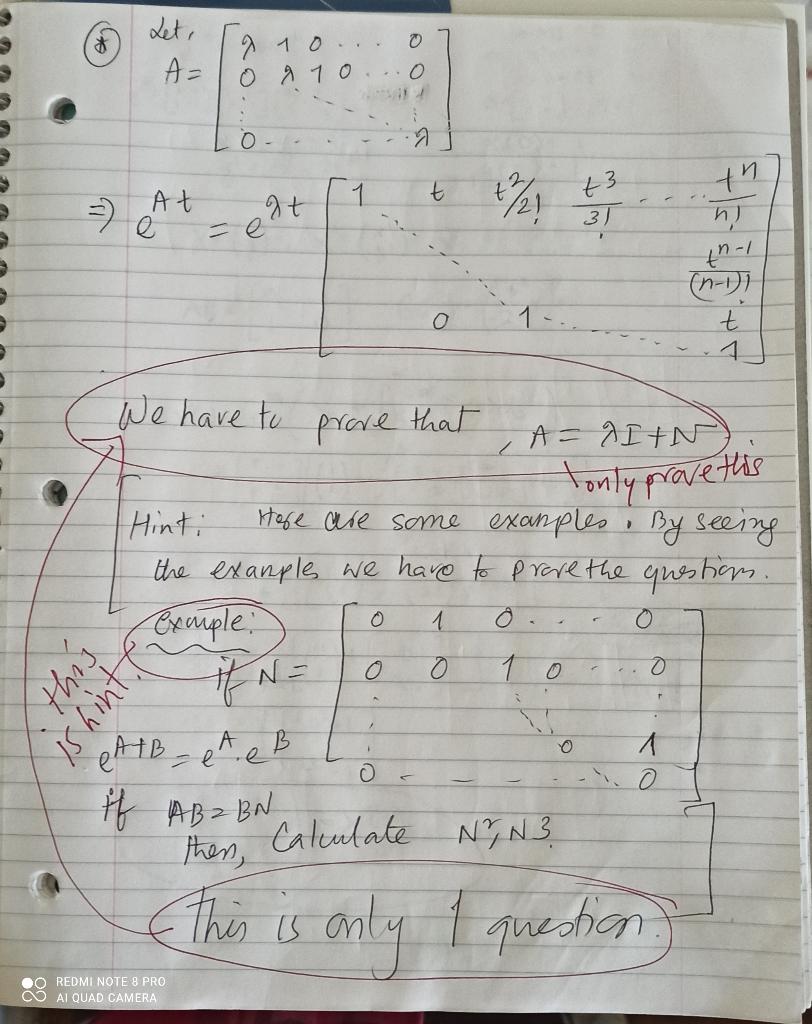 * Let,
A = [ λ 1 0 ... 0
0 λ 1 0 ... 0
0 - - - - λ ]
⇒ e^{At} = e^{λt} [ 1 t t²/2! t³/3! ... tⁿ/n!
t^{n-1}/(n-1)!
0 1 - - - - t
1 ]
We have to prove that , A = λI + N
only prove this
Hint: Here are some examples. By seeing
the examples we have to prove the question.
example:
this is hint.
if N = [ 0 1 0 ... 0
0 0 1 0 ... 0
0 1
0 - - - - 0 ]
e^{A+B} = e^A . e^B
if AB = BN
then, Calculate N², N³.
This is only 1 question.
REDMI NOTE 8 PRO
AI QUAD CAMERA